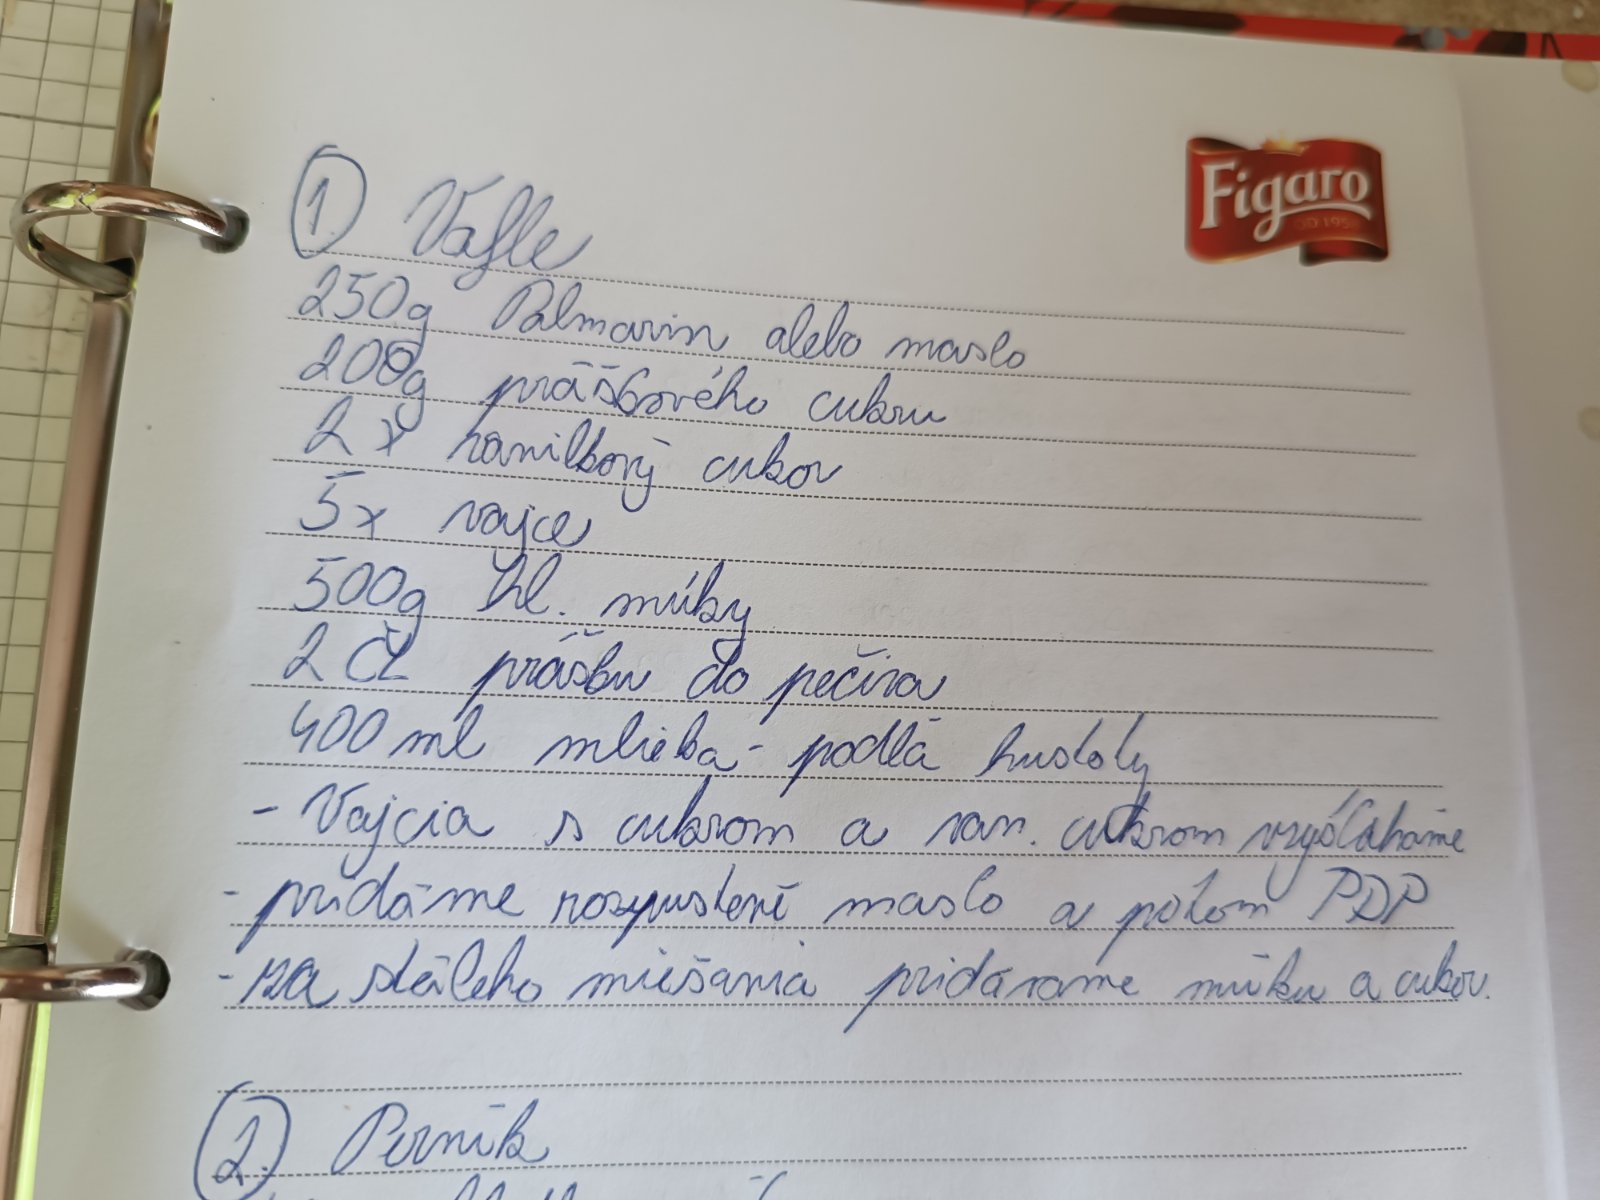 Figaro
OD 195
1. Vafle
250g Palmarin alebo maslo
200g práškového cukru
2x vanilkový cukor
5x vajce
500g hl. múky
2 ČL prášku do pečiva
400 ml mlieka - podľa hustoty
- Vajcia s cukrom a van. cukrom vyšľaháme
- pridáme rozpustené maslo a potom PDP
- za stáleho miešania pridávame múku a cukor.
2. Perník